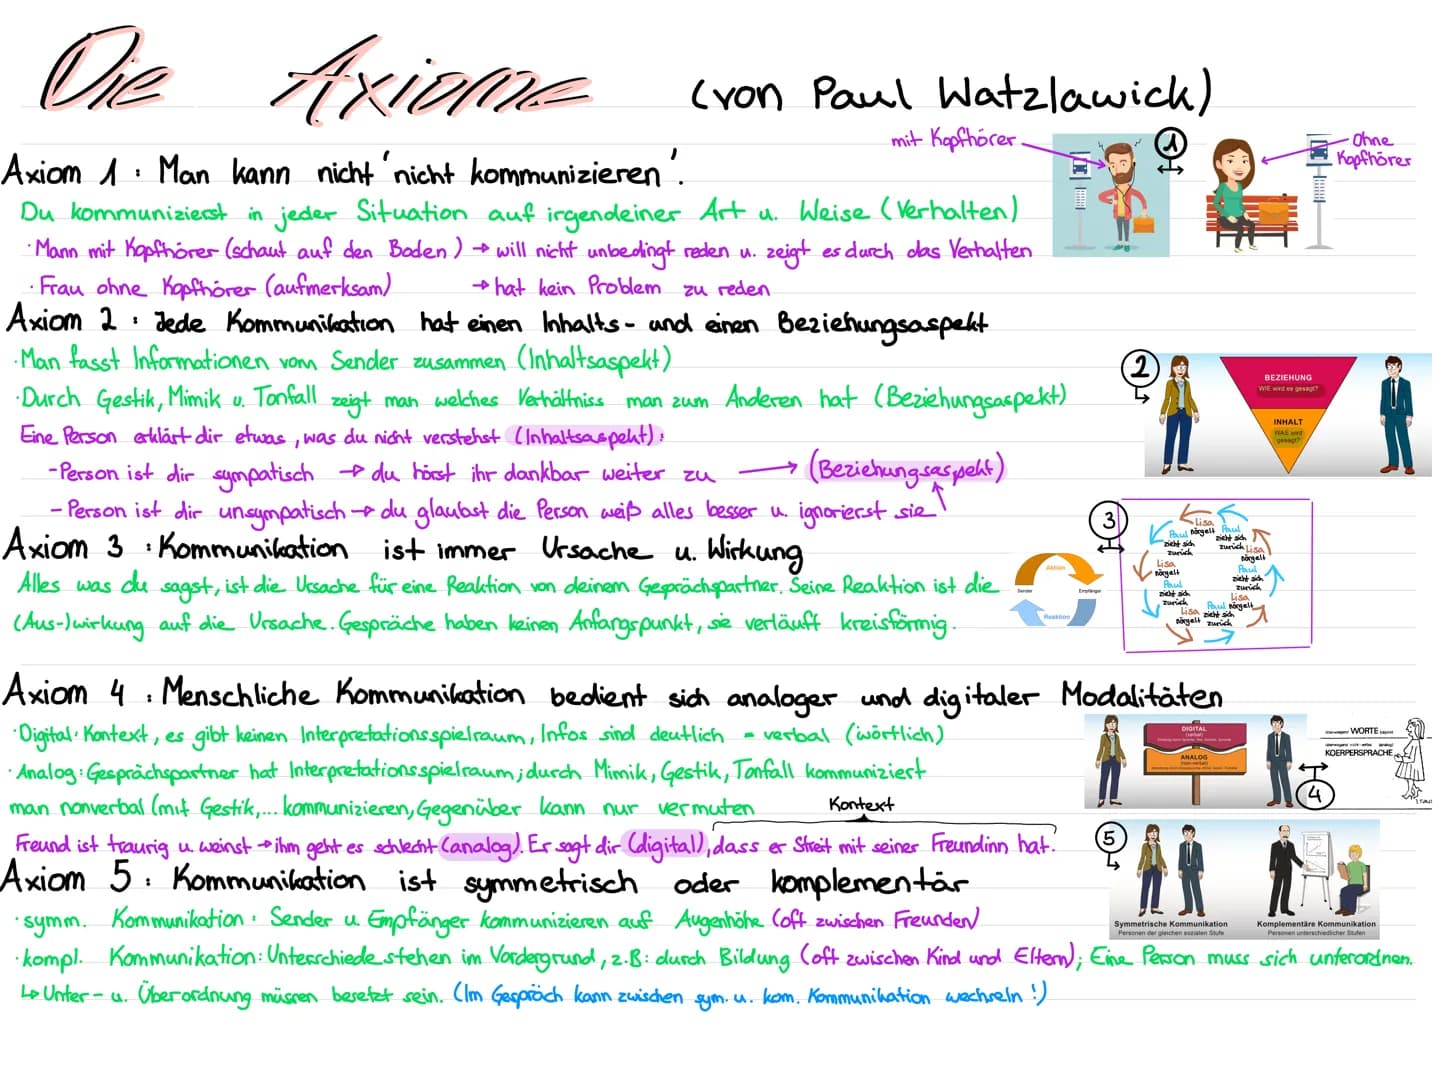 Die Axiome (von Paul Watzlawick)
mit Kopfhörer
1
Ohne
Kopfhörer
Axiom 1 : Man kann nicht 'nicht kommunizieren'.
Du kommunizierst in jeder Situation auf irgendeiner Art u. Weise (Verhalten)
· Mann mit Kopfhörer (schaut auf den Boden) → will nicht unbedingt reden u. zeigt es durch das Verhalten
· Frau ohne Kopfhörer (aufmerksam) → hat kein Problem zu reden
Axiom 2 : Jede Kommunikation hat einen Inhalts- und einen Beziehungsaspekt
· Man fasst Informationen vom Sender zusammen (Inhaltsaspekt)
· Durch Gestik, Mimik u. Tonfall zeigt man welches Verhältniss man zum Anderen hat (Beziehungsaspekt)
Eine Person erklärt dir etwas, was du nicht verstehst (Inhaltsaspekt):
- Person ist dir sympatisch → du hörst ihr dankbar weiter zu → (Beziehungsaspekt)
- Person ist dir unsympatisch → du glaubst die Person weiß alles besser u. ignorierst sie
2
BEZIEHUNG
WIE wird es gesagt?
INHALT
WAS wird
gesagt?
Axiom 3 : Kommunikation ist immer Ursache u. Wirkung
Alles was du sagst, ist die Ursache für eine Reaktion von deinem Gesprächspartner. Seine Reaktion ist die
(Aus-)wirkung auf die Ursache. Gespräche haben keinen Anfangspunkt, sie verläuft kreisförmig.
3
Aktion
Sender
Empfänger
Reaktion
Lisa
nörgelt
Paul
zieht sich
zurück
Lisa
nörgelt
Paul
zieht sich
zurück
Lisa
nörgelt
Paul
zieht sich
zurück
Lisa
nörgelt
Paul
zieht sich
zurück
Lisa
nörgelt
Paul
zieht sich
zurück
Axiom 4 : Menschliche Kommunikation bedient sich analoger und digitaler Modalitäten
· Digital: Kontext, es gibt keinen Interpretationsspielraum, Infos sind deutlich = verbal (wörtlich)
· Analog: Gesprächspartner hat Interpretationsspielraum; durch Mimik, Gestik, Tonfall kommuniziert
man nonverbal (mit Gestik,... kommunizieren, Gegenüber kann nur vermuten
Kontext
Freund ist traurig u. weinst → ihm geht es schlecht (analog). Er sagt dir (digital), dass er Streit mit seiner Freundinn hat.
DIGITAL
(verbal)
ANALOG
(non-verbal)
WORTE
KOERPERSPRACHE
4
Axiom 5 : Kommunikation ist symmetrisch oder komplementär
· symm. Kommunikation : Sender u. Empfänger kommunizieren auf Augenhöhe (oft zwischen Freunden)
· kompl. Kommunikation: Unterschiede stehen im Vordergrund, z.B: durch Bildung (oft zwischen Kind und Eltern); Eine Person muss sich unterordnen.
↳ Unter- u. Überordnung müssen besetzt sein. (Im Gespräch kann zwischen sym. u. kom. Kommunikation wechseln!)
5
Symmetrische Kommunikation
Personen der gleichen sozialen Stufe
Komplementäre Kommunikation
Personen unterschiedlicher Stufen